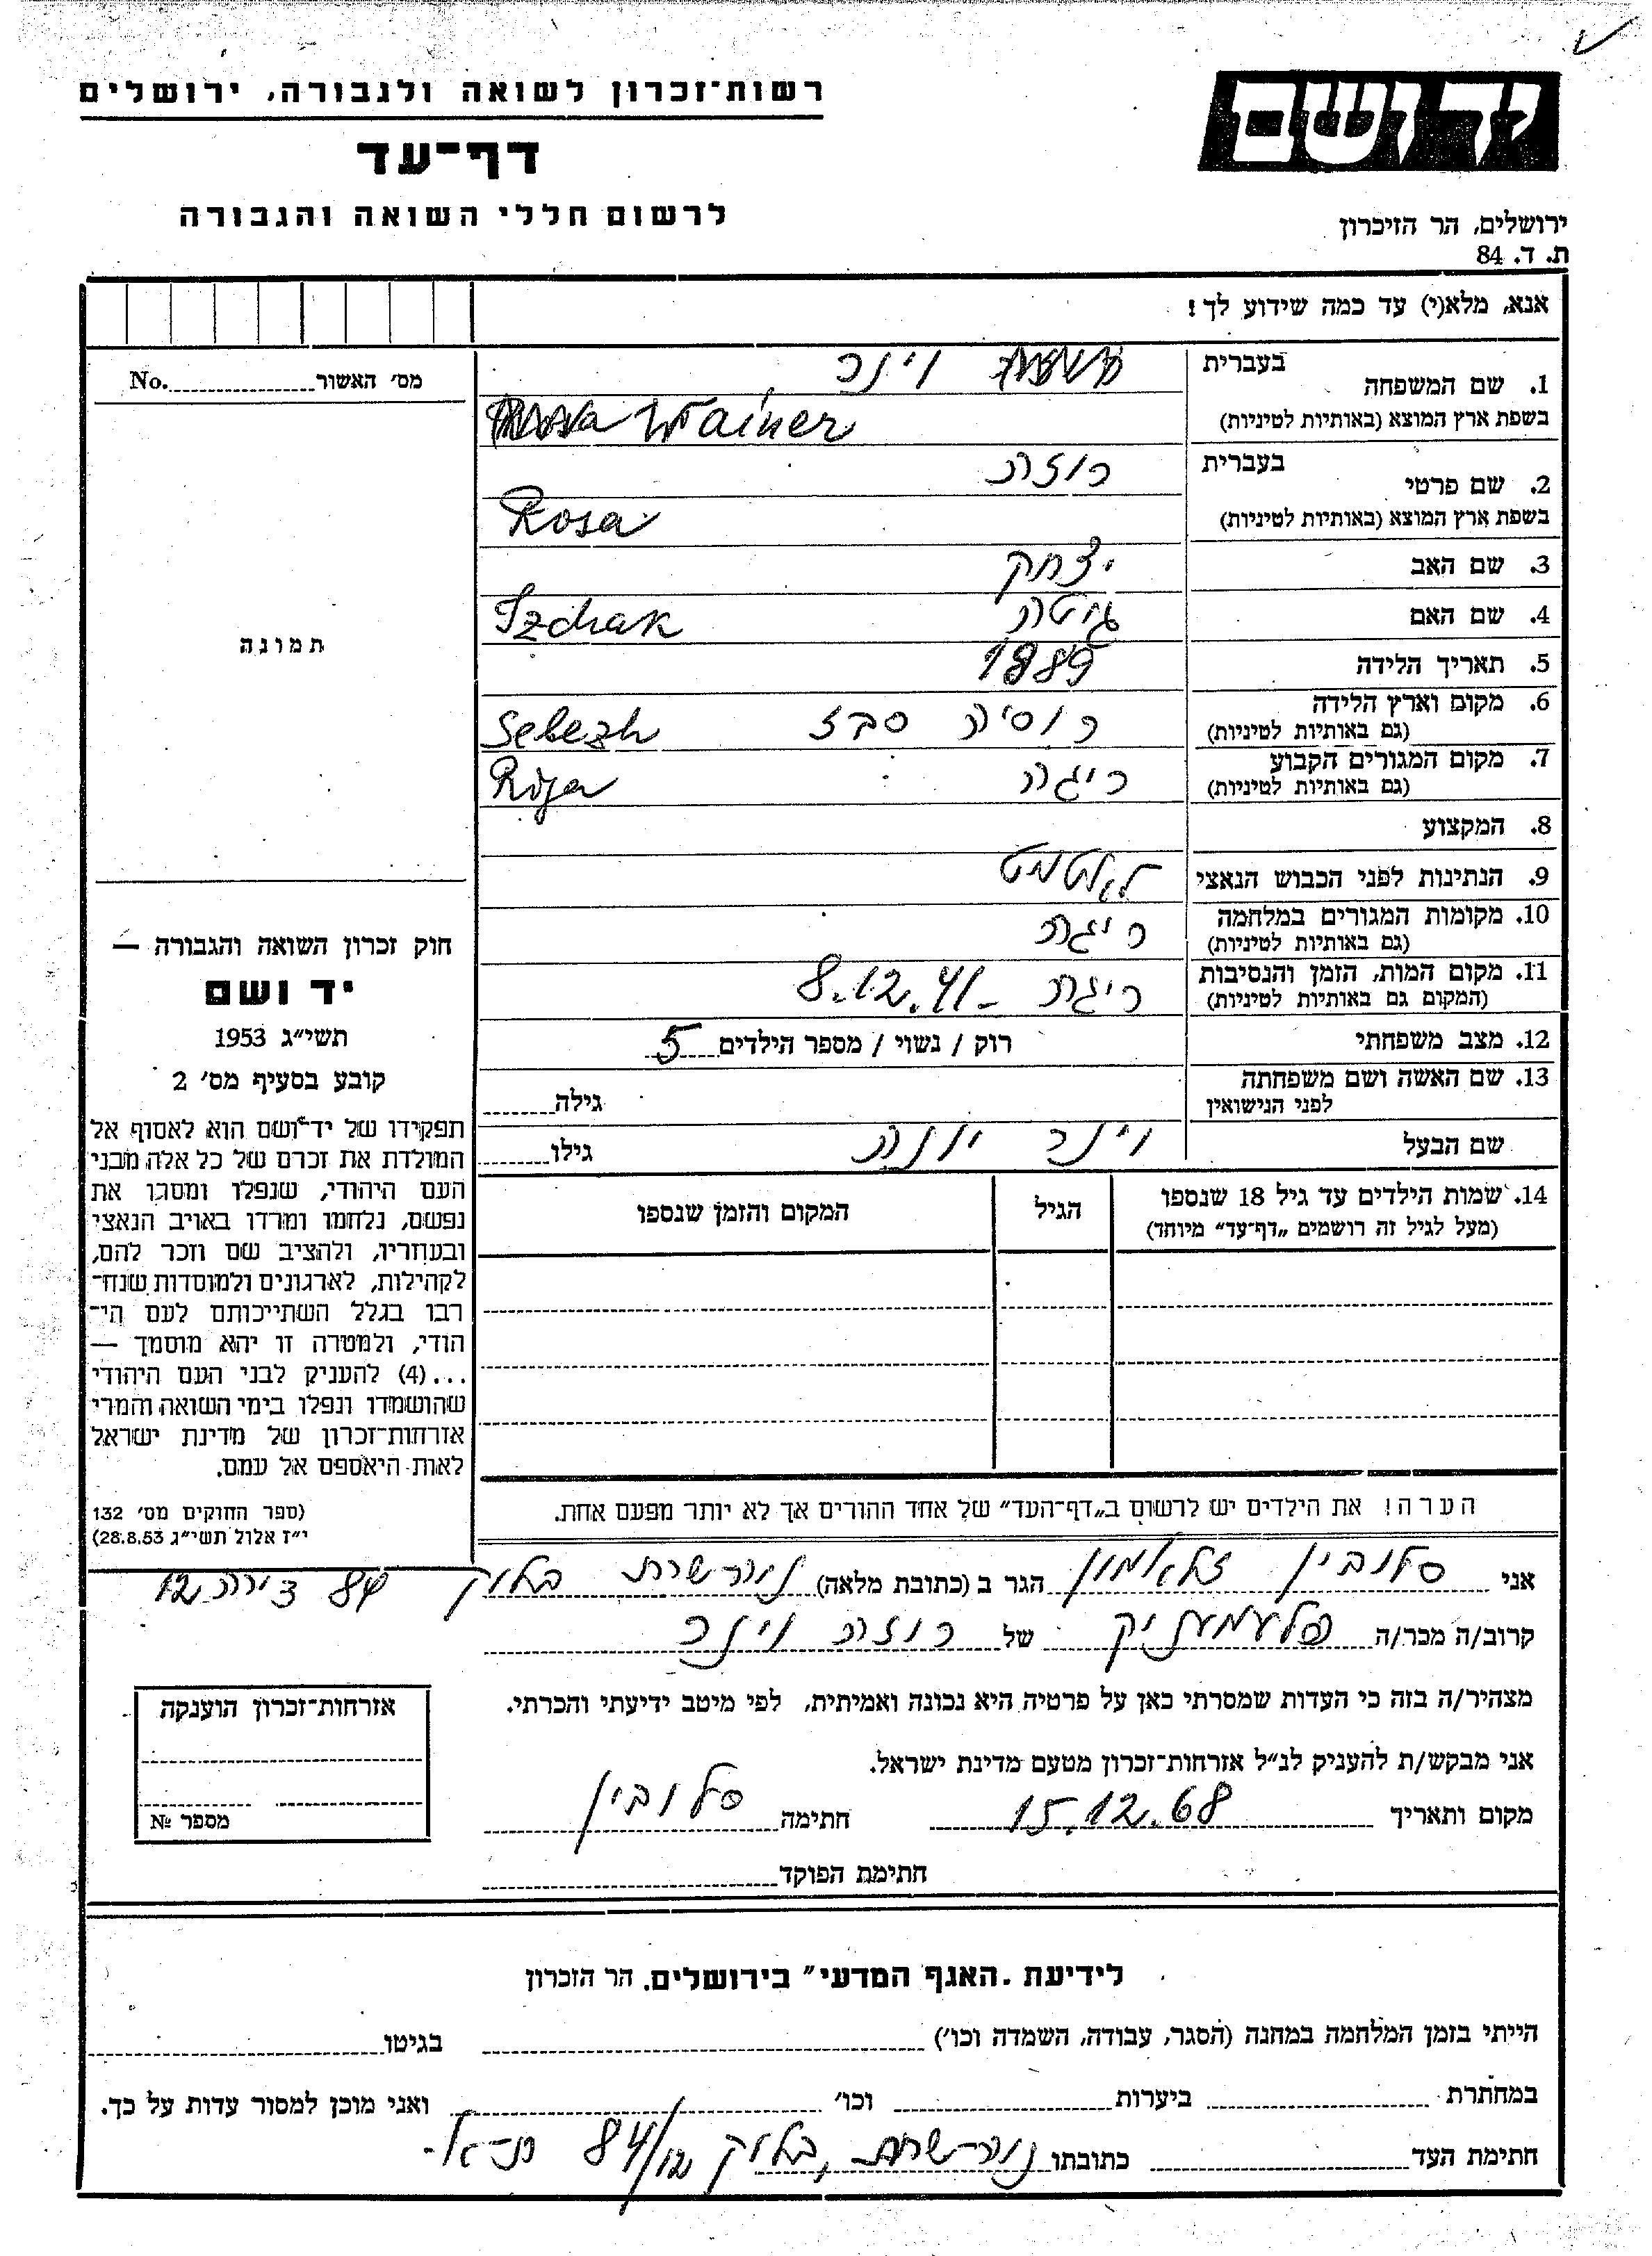 רשות־זכרון לשואה ולגבורה, ירושלים
דף־עד
לרשום חללי השואה והגבורה
יד ושם
ירושלים, הר הזיכרון
ת. ד. 84
אנא, מלא(י) עד כמה שידוע לך!
מס׳ האשור No.
תמונה
1. שם המשפחה בעברית וינר
בשפת ארץ המוצא (באותיות לטיניות) Wainer
2. שם פרטי בעברית רוזה
בשפת ארץ המוצא (באותיות לטיניות) Rosa
3. שם האב יצחק
4. שם האם גיטה Izchak
5. תאריך הלידה 1889
6. מקום וארץ הלידה רוסיה סבז Sebezh
(גם באותיות לטיניות)
7. מקום המגורים הקבוע ריגה Riga
(גם באותיות לטיניות)
8. המקצוע
9. הנתינות לפני הכבוש הנאצי
10. מקומות המגורים במלחמה ריגה
(גם באותיות לטיניות)
11. מקום המות, הזמן והנסיבות ריגה - 8.12.41
(המקום גם באותיות לטיניות)
12. מצב משפחתי רוק / נשוי / מספר הילדים 5
13. שם האשה ושם משפחתה
לפני הנישואין גילה
שם הבעל וינר יונה גילו
14. שמות הילדים עד גיל 18 שנספו הגיל המקום והזמן שנספו
(מעל לגיל זה רושמים „דף־עד״ מיוחד)
חוק זכרון השואה והגבורה —
יד ושם
תשי״ג 1953
קובע בסעיף מס׳ 2
תפקידו של יד־ושם הוא לאסוף אל
המולדת את זכרם של כל אלה מבני
העם היהודי, שנפלו ומסרו את
נפשם, נלחמו ומרדו באויב הנאצי
ובעוזריו, ולהציב שם וזכר להם,
לקהילות, לארגונים ולמוסדות שנח־
רבו בגלל השתייכותם לעם הי־
הודי, ולמטרה זו יהא מוסמך —
...(4) להעניק לבני העם היהודי
שהושמדו ונפלו בימי השואה והמרי
אזרחות־זכרון של מדינת ישראל
לאות היאספם אל עמם.
(ספר החוקים מס׳ 132
י״ז אלול תשי״ג 28.8.53)
הערה! את הילדים יש לרשום ב„דף־העד״ של אחד ההורים אך לא יותר מפעם אחת.
אני סלובין זלאמון הגר ב (כתובת מלאה) נווה־שרת בלוק 84 דירה 12
קרוב/ה מכר/ה פלעמעניק של רוזה וינר
מצהיר/ה בזה כי העדות שמסרתי כאן על פרטיה היא נכונה ואמיתית, לפי מיטב ידיעתי והכרתי.
אני מבקש/ת להעניק לנ״ל אזרחות־זכרון מטעם מדינת ישראל.
מקום ותאריך 15.12.68 חתימה סלובין
חתימת הפוקד
אזרחות־זכרון הוענקה
מספר №
לידיעת „האגף המדעי״ בירושלים. הר הזכרון
הייתי בזמן המלחמה במחנה (הסגר, עבודה, השמדה וכו׳) בגיטו
במחתרת ביערות וכו׳ ואני מוכן למסור עדות על כך.
חתימת העד כתובתו נווה־שרת, בלוק 84/12 ת־א